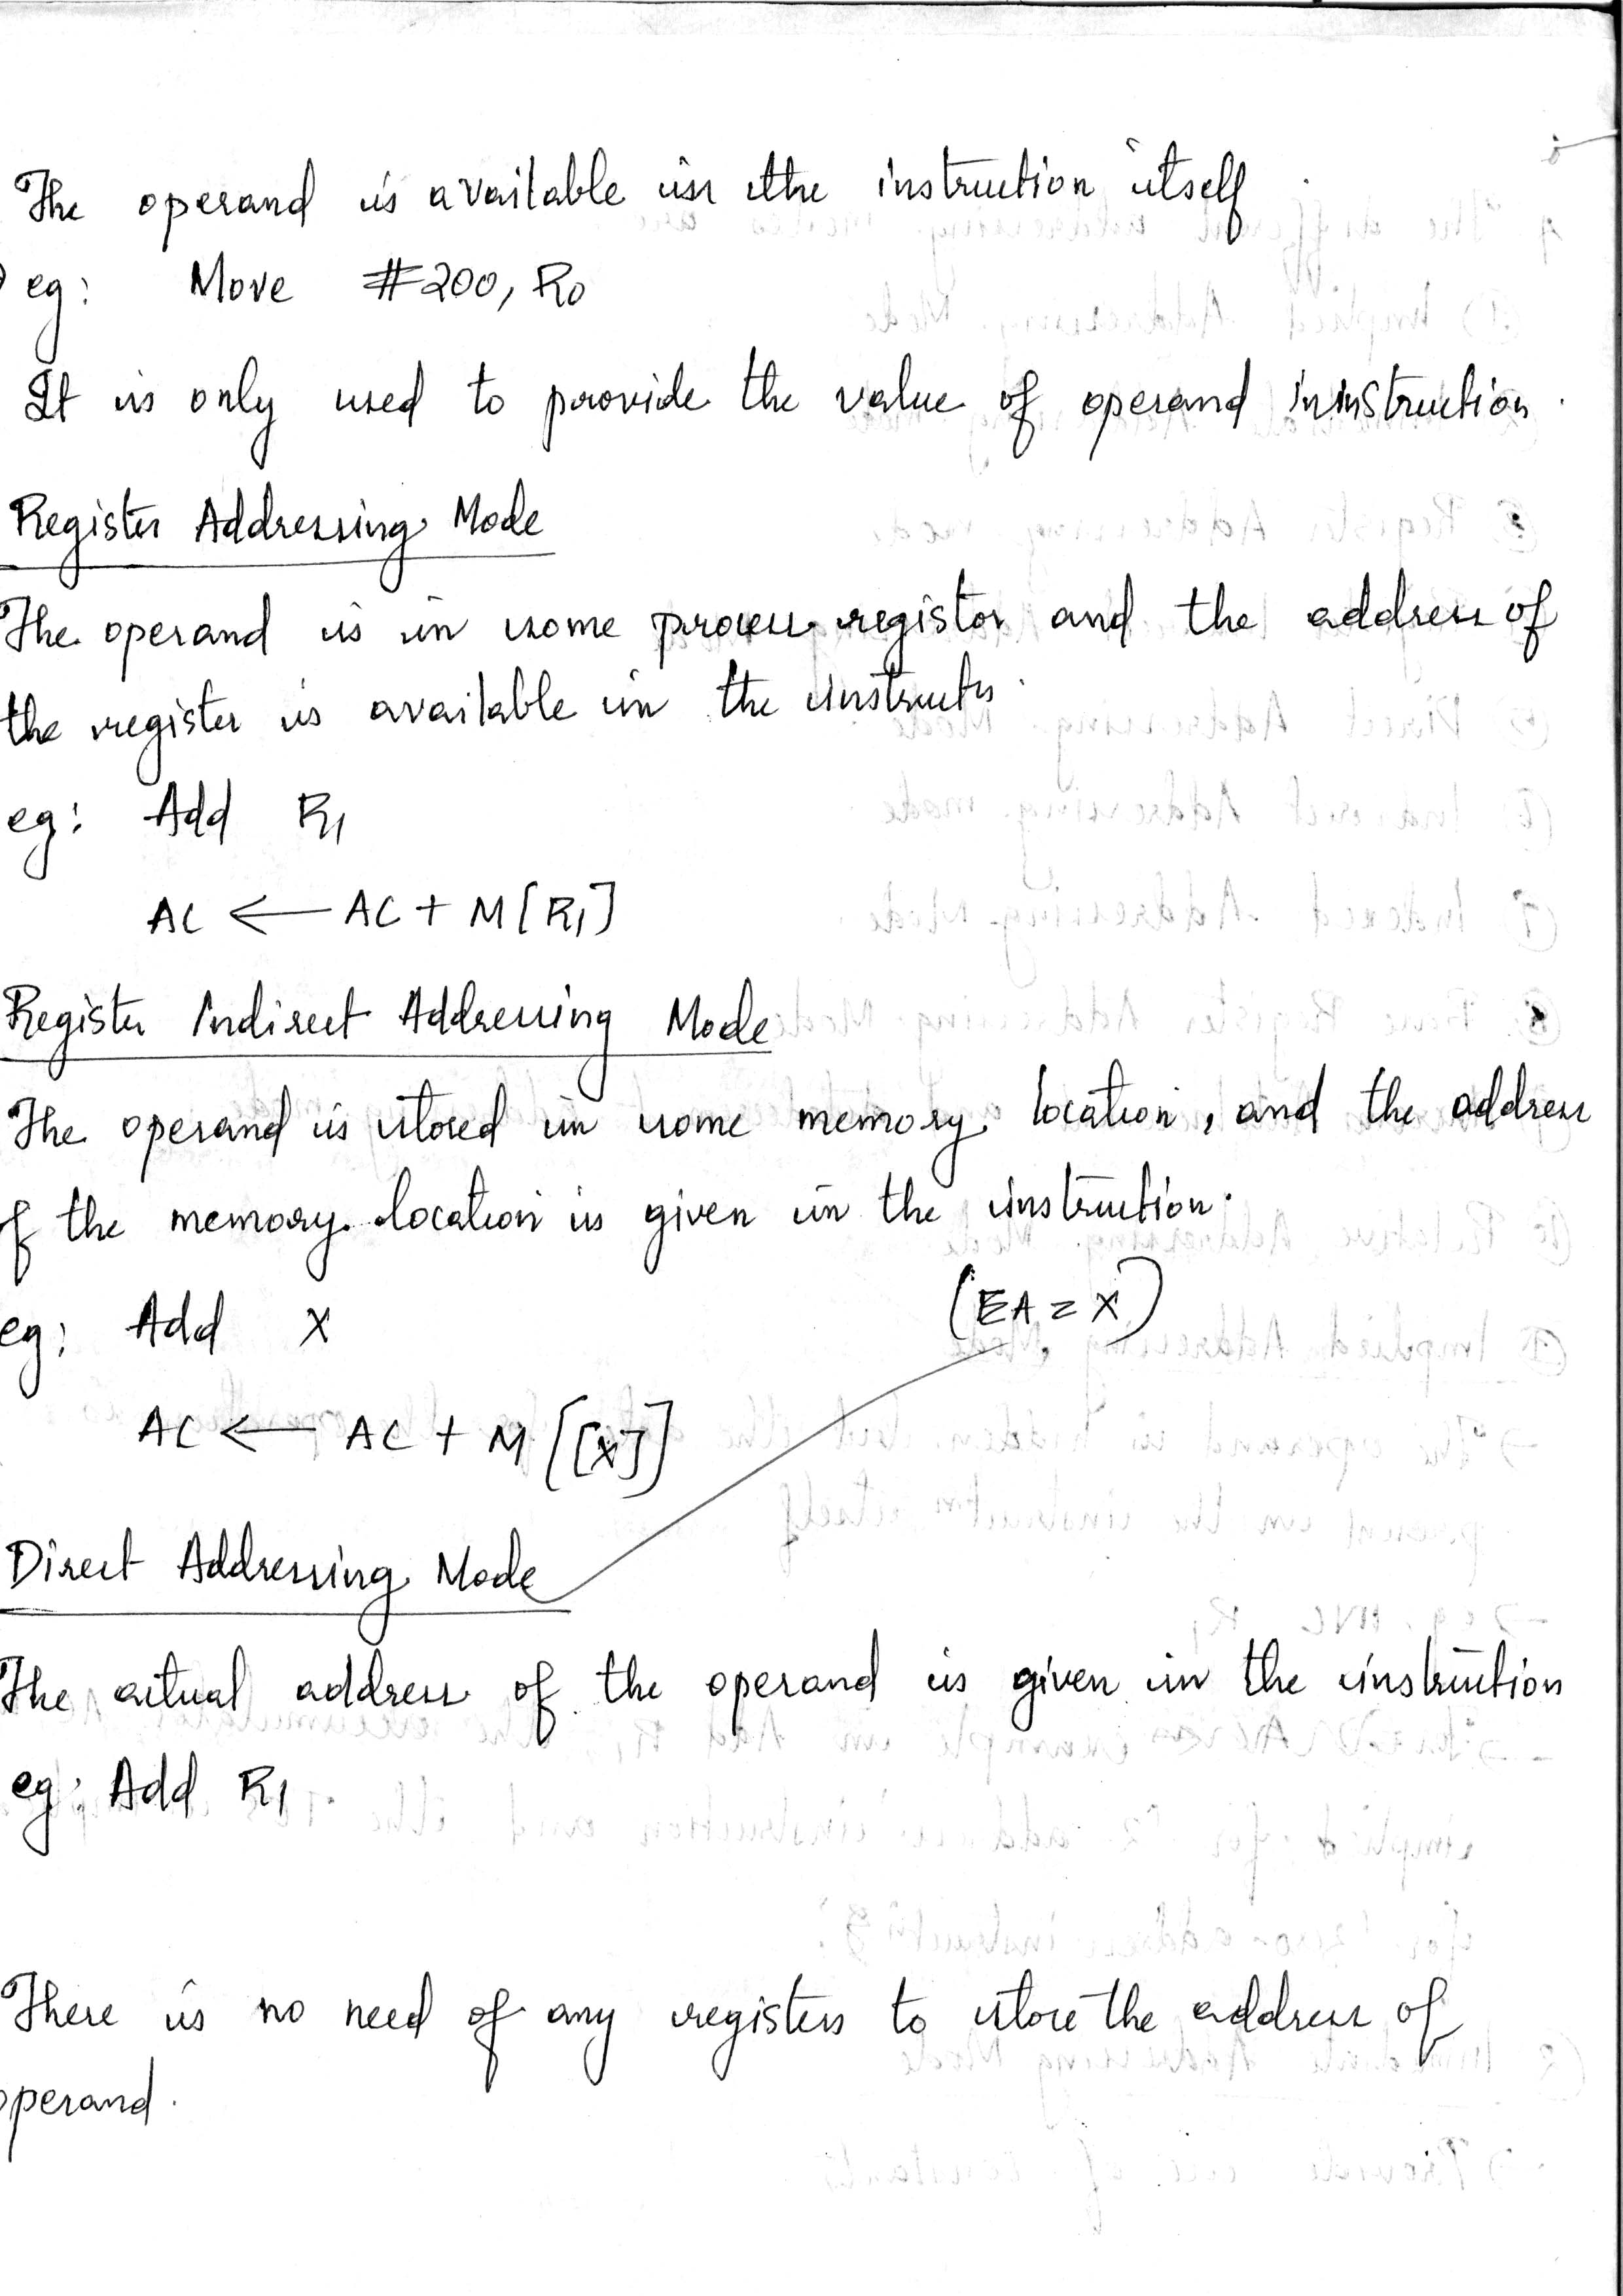 The operand is available in the instruction itself.
eg: Move #200, R0
It is only used to provide the value of operand in instruction.
Register Addressing Mode
The operand is in some process register and the address of
the register is available in the instructn.
eg: Add R1
AC ← AC + M[R1]
Register Indirect Addressing Mode
The operand is stored in some memory location, and the address
of the memory location is given in the instruction.
(EA = X)
eg: Add X
AC ← AC + M[[X]]
Direct Addressing Mode
The actual address of the operand is given in the instruction
eg: Add R1
There is no need of any registers to store the address of
operand.